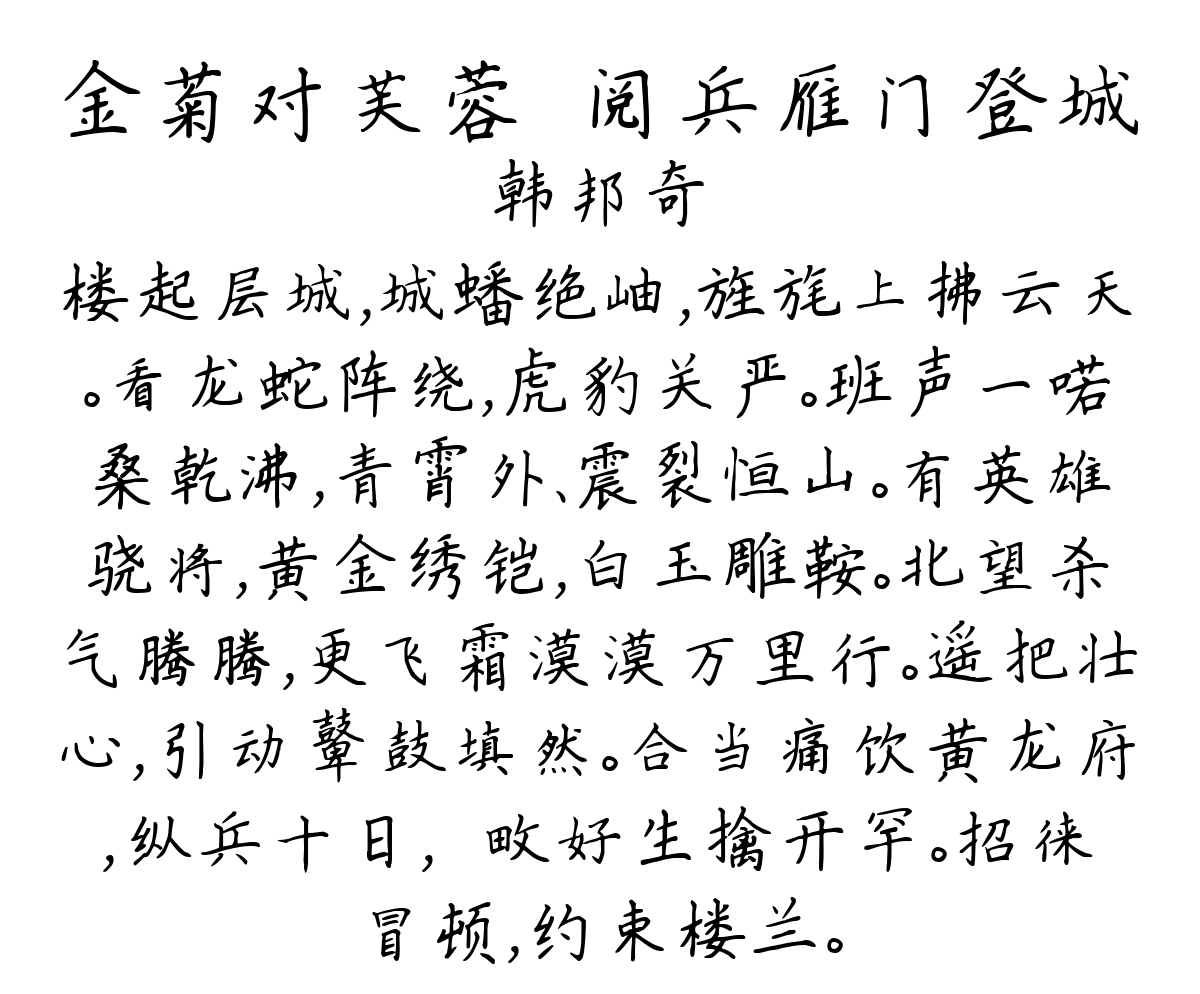 金菊对芙蓉 阅兵雁门登城
韩邦奇
楼起层城,城蟠绝岫,旌旄上拂云天
。看龙蛇阵绕,虎豹关严。班声一喏
桑乾沸,青霄外、震裂恒山。有英雄
骁将,黄金绣铠,白玉雕鞍。北望杀
气腾腾,更飞霜漠漠万里行。遥把壮
心,引动鼙鼓填然。合当痛饮黄龙府
,纵兵十日,畋好生擒开罕。招徕
冒顿,约束楼兰。